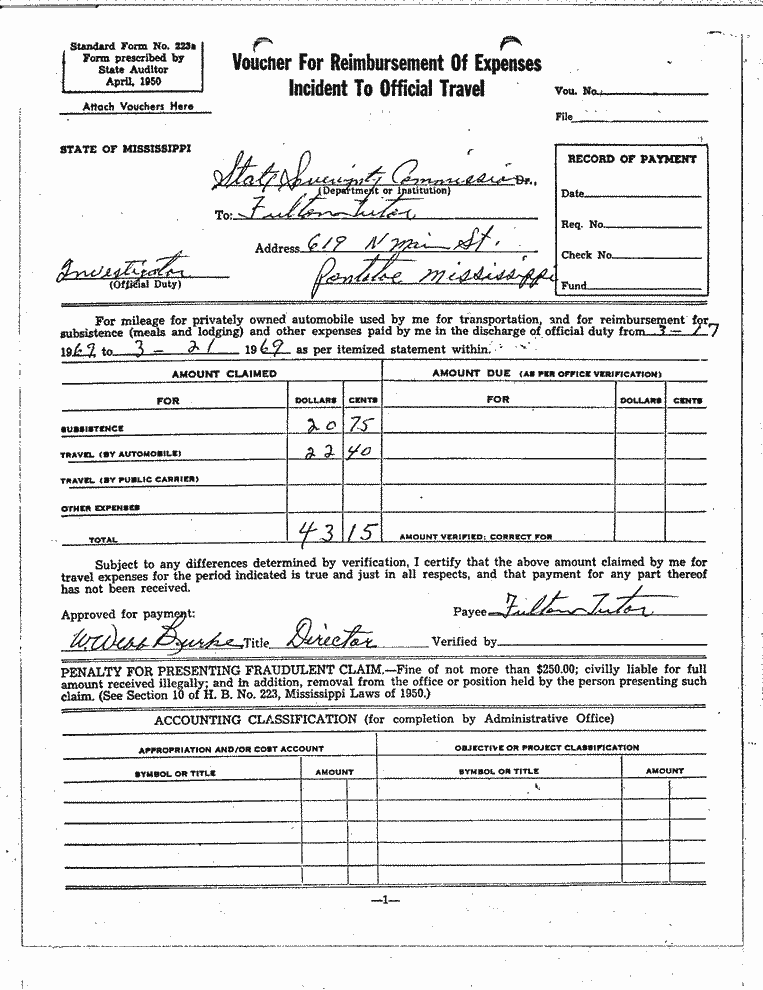 Standard Form No. 223a
Form prescribed by
State Auditor
April, 1950
Attach Vouchers Here
Voucher For Reimbursement Of Expenses
Incident To Official Travel
Vou. No.
File
STATE OF MISSISSIPPI
State Sovereignty Commission Dr.,
(Department or Institution)
To: Fulton Tutor
Address 619 N Main St.
Pontotoc Mississippi
Investigator
(Official Duty)
RECORD OF PAYMENT
Date
Req. No.
Check No.
Fund
For mileage for privately owned automobile used by me for transportation, and for reimbursement for
subsistence (meals and lodging) and other expenses paid by me in the discharge of official duty from 3-17
1969 to 3 - 21 1969 as per itemized statement within.
AMOUNT CLAIMED AMOUNT DUE (AS PER OFFICE VERIFICATION)
FOR DOLLARS CENTS FOR DOLLARS CENTS
SUBSISTENCE 20 75
TRAVEL (BY AUTOMOBILE) 22 40
TRAVEL (BY PUBLIC CARRIER)
OTHER EXPENSES
TOTAL 43 15 AMOUNT VERIFIED; CORRECT FOR
Subject to any differences determined by verification, I certify that the above amount claimed by me for
travel expenses for the period indicated is true and just in all respects, and that payment for any part thereof
has not been received.
Approved for payment: Payee Fulton Tutor
W. Webb Burke Title Director Verified by
PENALTY FOR PRESENTING FRAUDULENT CLAIM.—Fine of not more than $250.00; civilly liable for full
amount received illegally; and in addition, removal from the office or position held by the person presenting such
claim. (See Section 10 of H. B. No. 223, Mississippi Laws of 1950.)
ACCOUNTING CLASSIFICATION (for completion by Administrative Office)
APPROPRIATION AND/OR COST ACCOUNT OBJECTIVE OR PROJECT CLASSIFICATION
SYMBOL OR TITLE AMOUNT SYMBOL OR TITLE AMOUNT
—1—